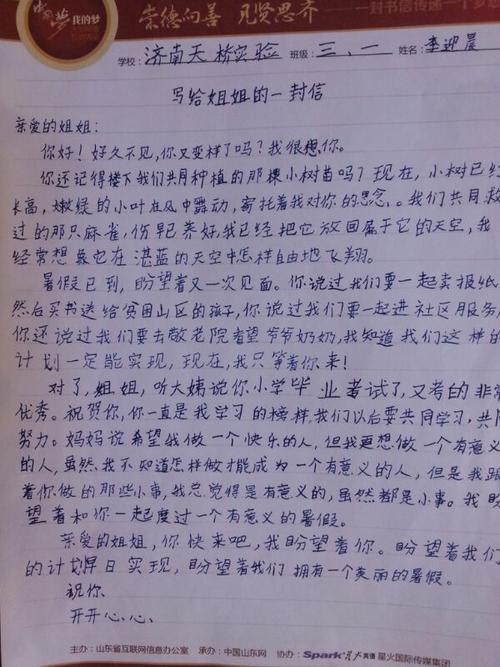 中国梦 我的梦
崇德向善 见贤思齐 一封书信传递一个梦
学校：济南天桥实验 班级：三、一 姓名：李迎晨
写给姐姐的一封信
亲爱的姐姐：
你好！好久不见，你又变样了吗？我很想你。
你还记得楼下我们共同种植的那棵小树苗吗？现在，小树已经
长高，嫩绿的小叶在风中舞动，寄托着我对你的思念。我们共同救
过的那只麻雀，伤早已养好，我已经把它放回属于它的天空，我
经常想象它在湛蓝的天空中怎样自由地飞翔。
暑假已到，盼望着又一次见面。你说过我们要一起卖报纸
然后买书送给贫困山区的孩子，你说过我们要一起进社区服务，
你还说过我们要去敬老院看望爷爷奶奶，我知道我们这样的
计划一定能实现，现在，我只等着你来！
对了，姐姐，听大姨说你小学毕业考试了，又考的非常
优秀。祝贺你，你一直是我学习的榜样，我们以后要共同学习，共同
努力。妈妈说希望我做一个快乐的人，但我更想做一个有意义
的人，虽然我不知道怎样做才能成为一个有意义的人，但是我跟
着你做的那些小事，我总觉得是有意义的，虽然都是小事。我盼
望着和你一起度过一个有意义的暑假。
亲爱的姐姐，你快来吧，我盼望着你。盼望着我们
的计划早日实现，盼望着我们拥有一个美丽的暑假。
祝你
开开心心
主办：山东省互联网信息办公室 承办：中国山东网 协办：Spark星火英语 星火国际传媒集团